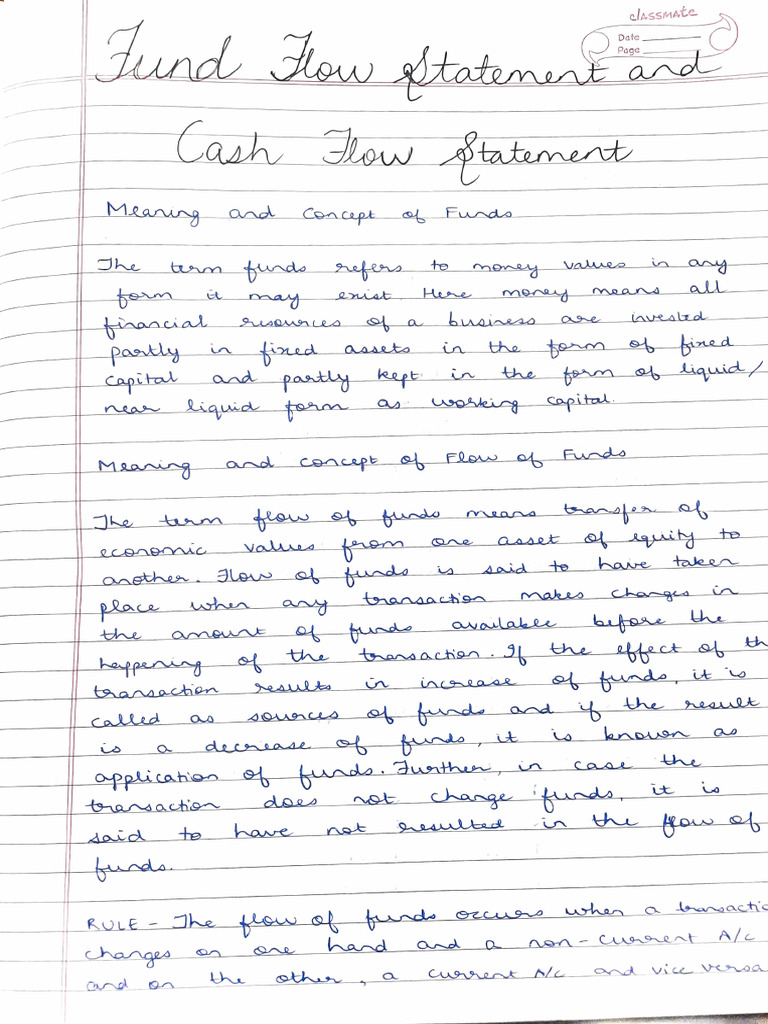 classmate
Date
Page
Fund Flow Statement and
Cash Flow Statement
Meaning and Concept of Funds
The term funds refers to money values in any
form it may exist. Here money means all
financial resources of a business are invested
partly in fixed assets in the form of fixed
capital and partly kept in the form of liquid/
near liquid form as working capital.
Meaning and concept of Flow of Funds
The term flow of funds means transfer of
economic values from one asset of equity to
another. Flow of funds is said to have taken
place when any transaction makes changes in
the amount of funds available before the
happening of the transaction. If the effect of th
transaction results in increase of funds, it is
called as sources of funds and if the result
is a decrease of funds, it is known as
application of funds. Further, in case the
transaction does not change funds, it is
said to have not resulted in the flow of
funds.
RULE - The flow of funds occurs when a transactio
changes on one hand and a non-current A/c
and on the other, a current A/c and vice versa